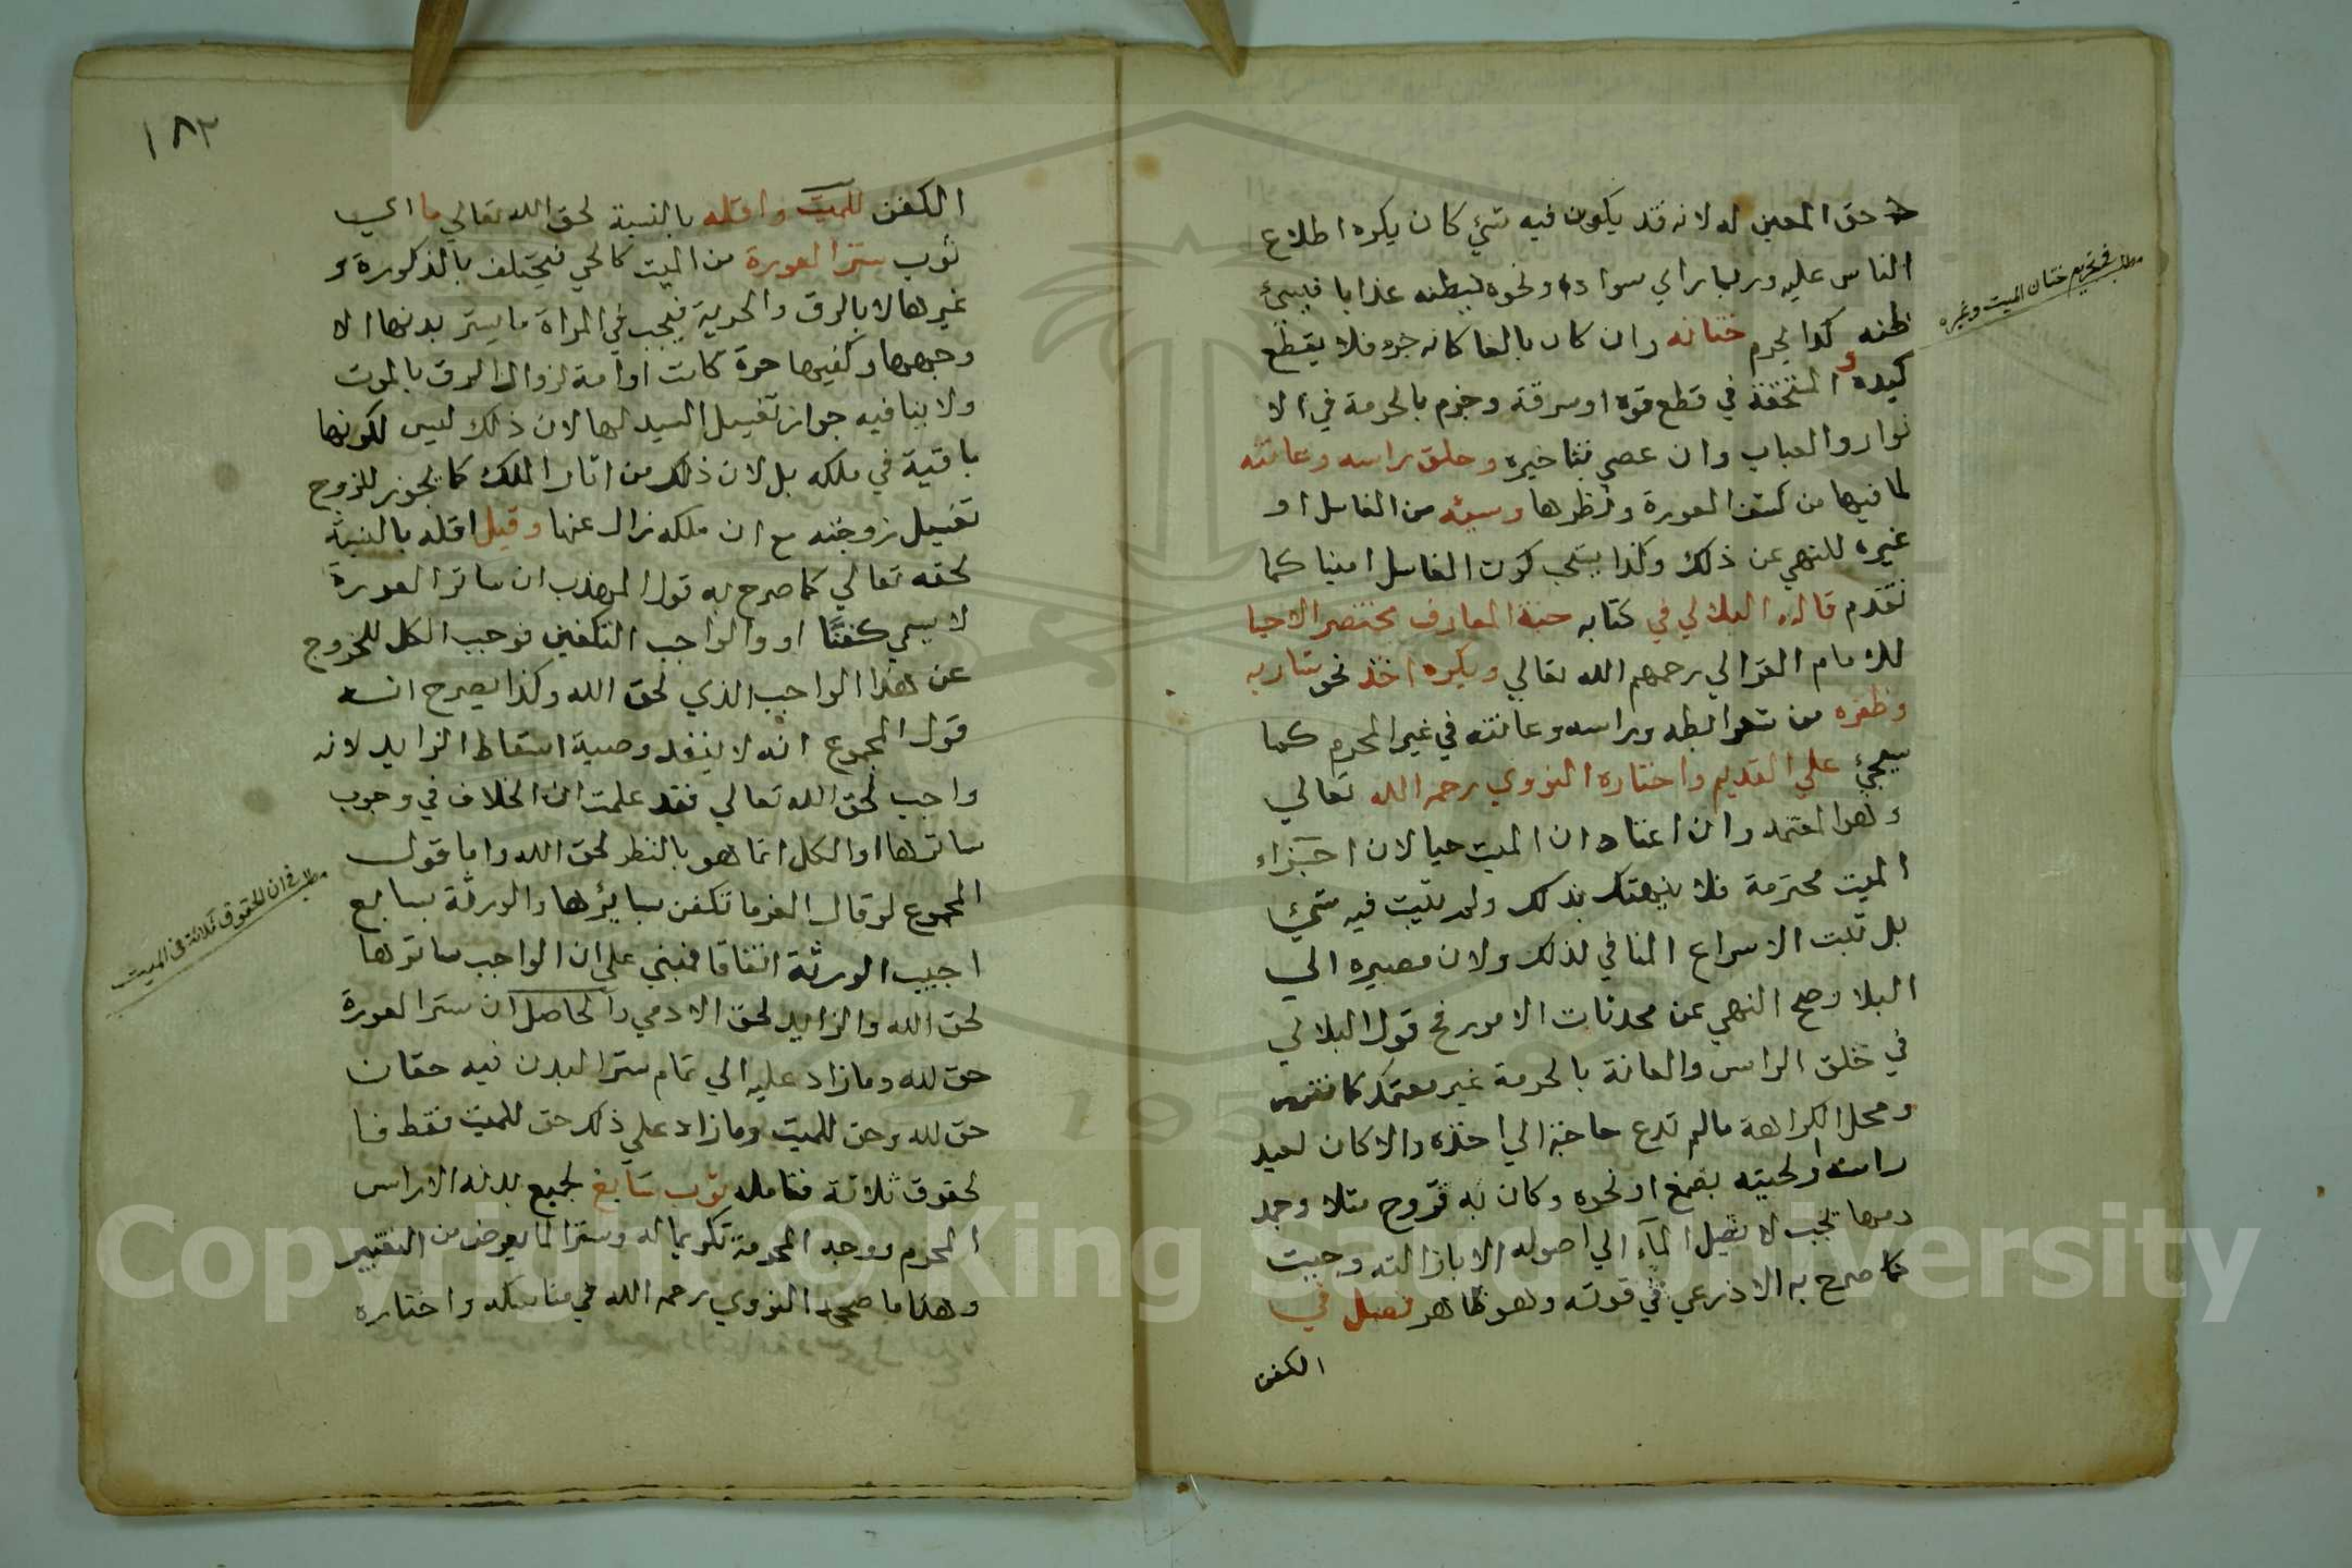 حق المعين له لانه قد يكون فيه شيء كان يكره اطلاع
الناس عليه وربما راي سوادا ونحوه فيظنه عذابا فيسيئ
ظنه كذا يحرم ختانه وان كان بالغا كانه جزء فلا يقطع
كيده المستحقة في قطع قود او سرقة وجزم بالحرمة في الا
نوار والعباب وان عصي بتاخيره وحلق راسه وعانته
لما فيها من كشف العورة ونظرها ومسه من الغاسل او
غيره للنهي عن ذلك وكذا يستحب كون الغاسل امينا كما
تقدم قاله البلالي في كتابه جنة المعارف مختصر الاحيا
للامام الغزالي رحمهم الله تعالي ويكره اخذ نحو شاربه
وظفره من شعر ابطه وراسه وعانته في غير المحرم كما
سيجيئ علي القديم واختاره النووي رحمه الله تعالي
وهو المعتمد وان اعتاده الميت حيا لان اجزاء
الميت محترمة فلا ينهتك بذلك ولم يثبت فيه شيئ
بل ثبت الاسراع المنافي لذلك ولان مصيره الي
البلا وصح النهي عن محدثات الامور فح قول البلالي
في حلق الراس والعانة بالحرمة غير معتمد كما تقرر
ومحل الكراهة مالم تدع حاجة الي اخذه والا كان لبد
راسه او لحيته بصمغ او نحوه وكان به قروح مثلا وجمد
دمها بحيث لا يصل الماء الي اصوله الا بازالته وجبت
كما صرح به الاذرعي في قوته وهو ظاهر فصل في
الكفن
مطلب في تحريم ختان الميت وغيره
١٨٢
الكفن للميت واقله بالنسبة لحق الله تعالي ما اي
ثوب ستر العورة من الميت كالحي فيختلف بالذكورة و
غيرها لا بالرق والحرية فيجب في المراة ما يستر بدنها الا
وجهها وكفيها حرة كانت او امة لزوال الرق بالموت
ولا ينافيه جواز تغسيل السيد لها لان ذلك ليس لكونها
باقية في ملكه بل لان ذلك من اثار الملك كما يجوز للزوج
تغسيل زوجته مع ان ملكه زال عنها وقيل اقله بالنسبة
لحقه تعالي كما صرح به قول المهذب ان ساتر العورة
لا يسمي كفنًا او والواجب التكفين فوجب الكل للخروج
عن هذا الواجب الذي لحق الله وكذا يصرح انه
قول المجموع انه لا ينفذ وصية اسقاط الزايد لانه
واجب لحق الله تعالي فقد علمت ان الخلاف في وجوب
ساترها او الكل انما هو بالنظر لحق الله واما قول
المجموع لو قال الغرما تكفن بساترها والورثة بسابغ
اجيب الورثة اتفاقا فمبني علي ان الواجب ساترها
لحق الله والزايد لحق الادمي والحاصل ان ستر العورة
حق لله وما زاد عليه الي تمام ستر البدن فيه حقان
حق لله وحق للميت وما زاد علي ذلك حق للميت فقط فا
لحقوق ثلاثة فتامله ثوب سابغ لجميع بدنه الا راس
المحرم ووجه المحرمة تكريما له وسترا لما يعرض من التغيير
وهذا ما صححه النووي رحمه الله في مناسكه واختاره
مطلب في ان الحقوق ثلاثة في الميت
Copyright © King Saud University
195